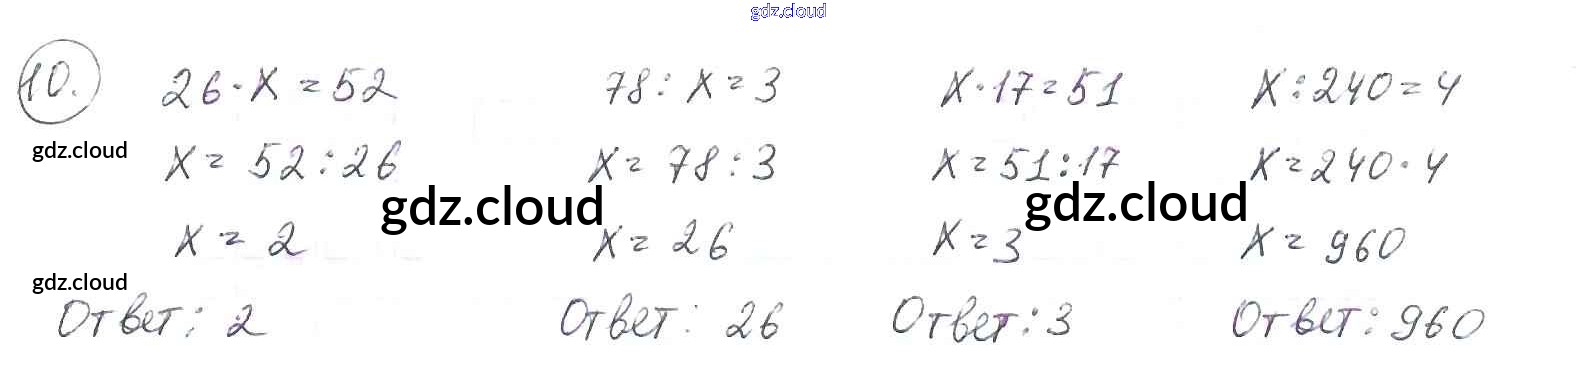 gdz.cloud
10. 26·x=52 78:x=3 x·17=51 x:240=4
gdz.cloud
x=52:26 x=78:3 x=51:17 x=240·4
gdz.cloud gdz.cloud
x=2 x=26 x=3 x=960
gdz.cloud
Ответ: 2 Ответ: 26 Ответ: 3 Ответ: 960